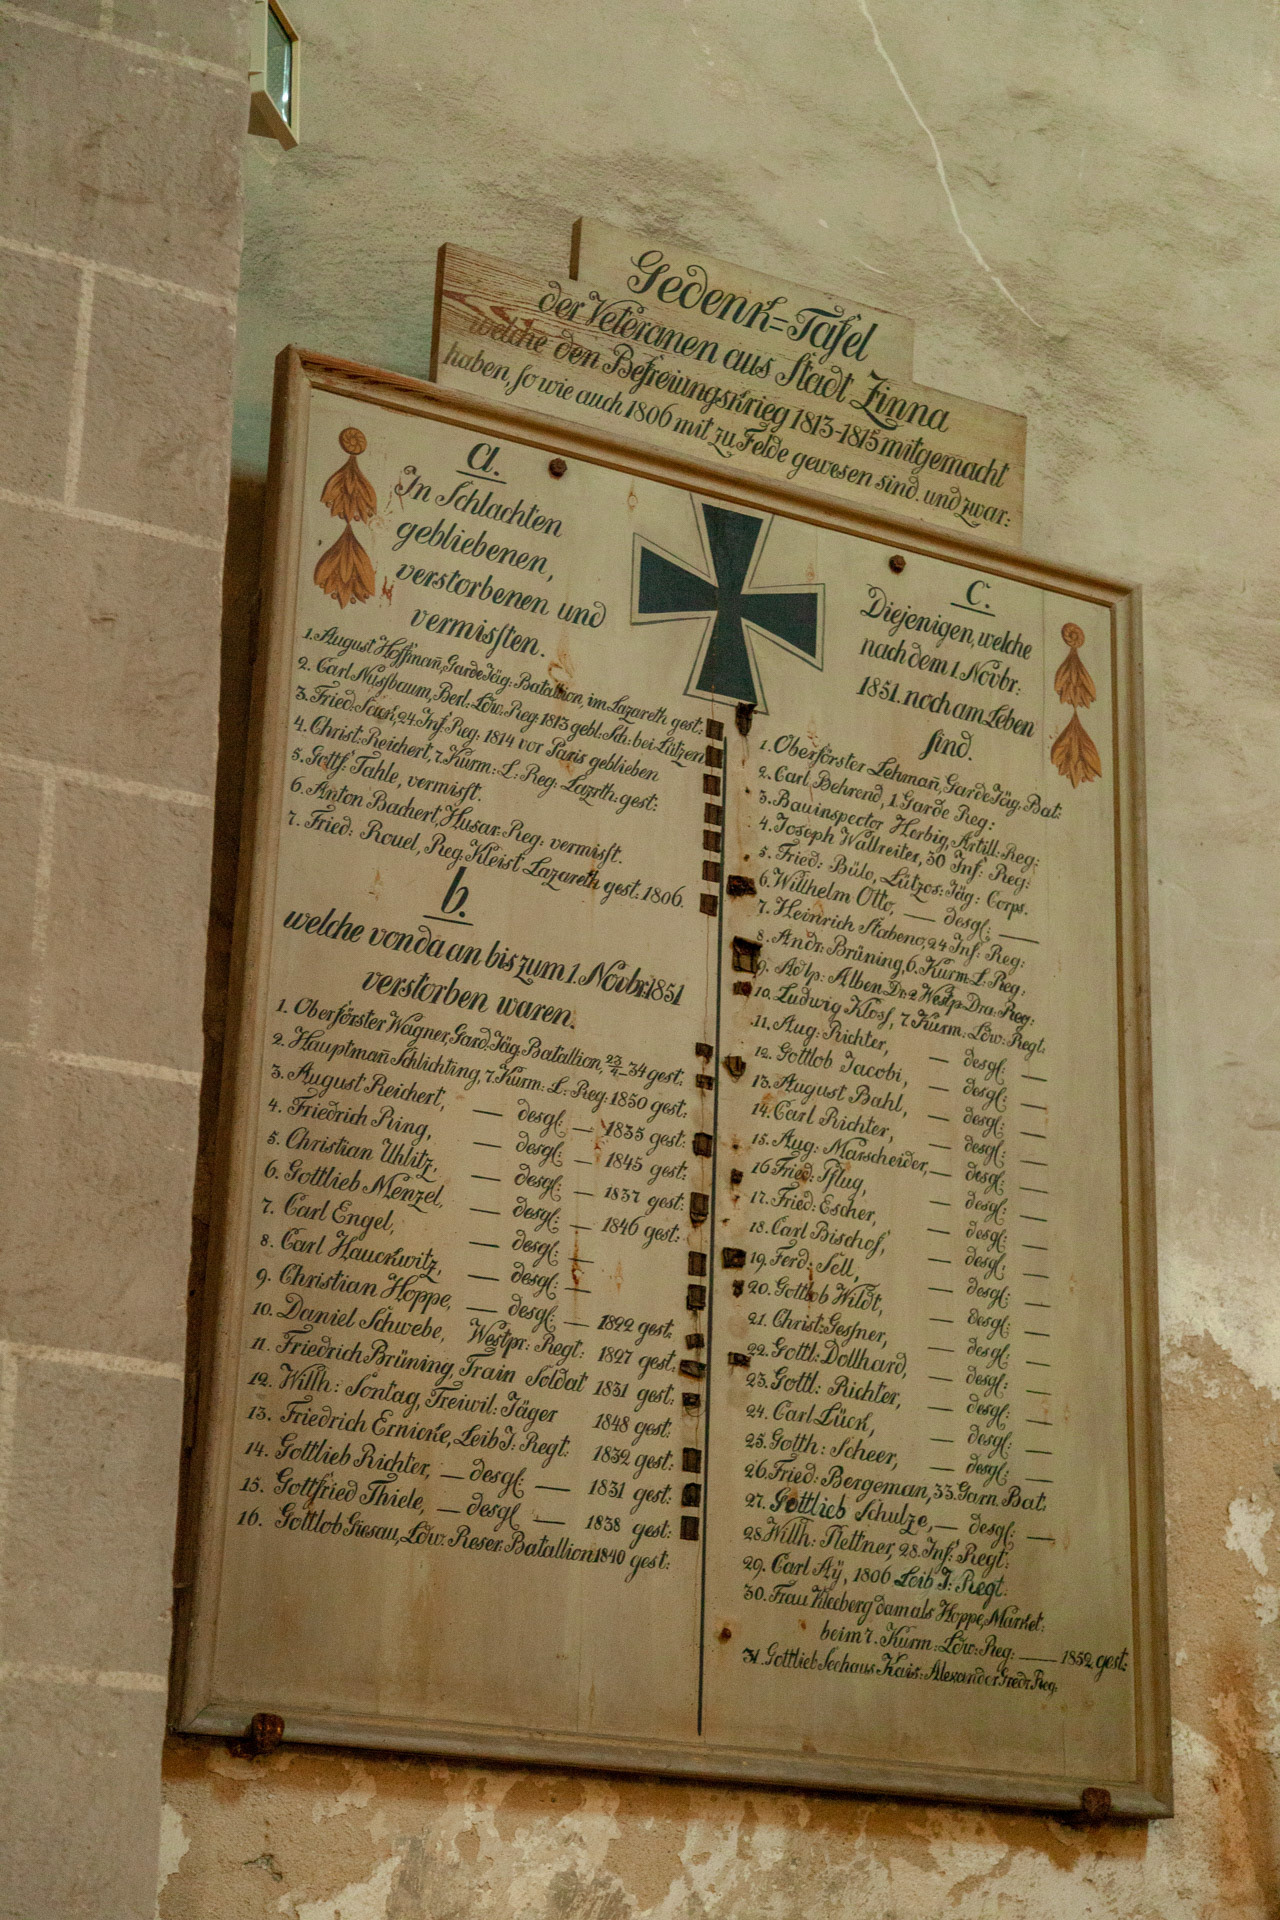 Gedenk=Tafel
der Veteranen aus Stadt Zinna
welche den Befreiungskrieg 1813-1815 mitgemacht
haben, so wie auch 1806 mit zu Felde gewesen sind. und zwar:
a.
In Schlachten
gebliebenen,
verstorbenen und
vermissten.
1. August Hoffman̄, Garde Jäg: Batallion, im Lazareth gest:
2. Carl Nussbaum, Berl: Ldw: Reg: 1813 gebl: Sch: bei Lützen
3. Fried: 24. Inf: Reg: 1814 vor Paris geblieben
4. Christ: Reichert, 7. Kurm: L: Reg: Lazrth: gest:
5. Gottf: Tahle, vermisst.
6. Anton Bachert, Husar: Reg: vermisst.
7. Fried: Rouel, Reg: Kleist Lazareth gest: 1806.
b.
welche von da an bis zum 1. Novbr: 1851
verstorben waren.
1. Oberförster Wagner, Gard: Jäg: Batallion, 23/4 34 gest:
2. Hauptman̄ Schlichting, 7. Kurm: L: Reg: 1850 gest:
3. August Reichert, — desgl: — 1835 gest:
4. Friedrich Ring, — desgl: — 1845 gest:
5. Christian Uhlitz, — desgl: — 1837 gest:
6. Gottlieb Menzel, — desgl: — 1846 gest:
7. Carl Engel, — desgl: —
8. Carl Hauckwitz, — desgl: —
9. Christian Hoppe, — desgl: — 1822 gest:
10. Daniel Schwebe, Westpr: Regt: 1827 gest:
11. Friedrich Brüning, Train Soldat 1831 gest:
12. Willh: Sontag, Freiwil: Jäger 1848 gest:
13. Friedrich Ernicke, Leib I: Regt: 1832 gest:
14. Gottlieb Richter, — desgl: — 1831 gest:
15. Gottfried Thiele, — desgl — 1838 gest:
16. Gottlob Giesau, Ldw: Reser: Batallion 1840 gest:
c.
Diejenigen, welche
nach dem 1. Novbr:
1851. noch am Leben
sind.
1. Oberförster Lehman̄, Garde Jäg: Bat:
2. Carl Behrend, 1. Garde Reg:
3. Bauinspector Herbig, Artill: Reg:
4. Joseph Wallreiter, 30 Inf: Reg:
5. Fried: Bülo, Lützos: Jäg: Corps.
6. Willhelm Otto, — desgl: —
7. Heinrich Stabeno, 24 Inf: Reg:
8. Andr: Brüning, 6. Kurm: L: Reg:
9. Adlp: Alben Dr: 2 Westp: Dra: Reg:
10. Ludwig Kloss, 7. Kurm: Ldw: Regt:
11. Aug: Richter, — desgl: —
12. Gottlob Jacobi, — desgl: —
13. August Bahl, — desgl: —
14. Carl Richter, — desgl: —
15. Aug: Marscheider, — desgl: —
16 Fried: Pflug, — desgl: —
17. Fried: Escher, — desgl: —
18. Carl Bischof, — desgl: —
19. Ferd: Sell, — desgl: —
20. Gottlob Wildt, — desgl: —
21. Christ: Gessner, — desgl: —
22. Gottl: Dollhard, — desgl: —
23. Gottl: Richter, — desgl: —
24. Carl Lück, — desgl: —
25. Gotth: Scheer, — desgl: —
26. Fried: Bergeman, 33. Garn: Bat:
27. Gottlieb Schulze, — desgl: —
28. Willh: Plettner, 28. Inf: Regt:
29. Carl Aÿ, 1806 Leib I: Regt:
30. Frau Kleeberg damals Hoppe, Market:
beim 7. Kurm: Ldw: Reg: — 1852 gest:
31. Gottlieb Seehaus Kais: Alexander Reg: